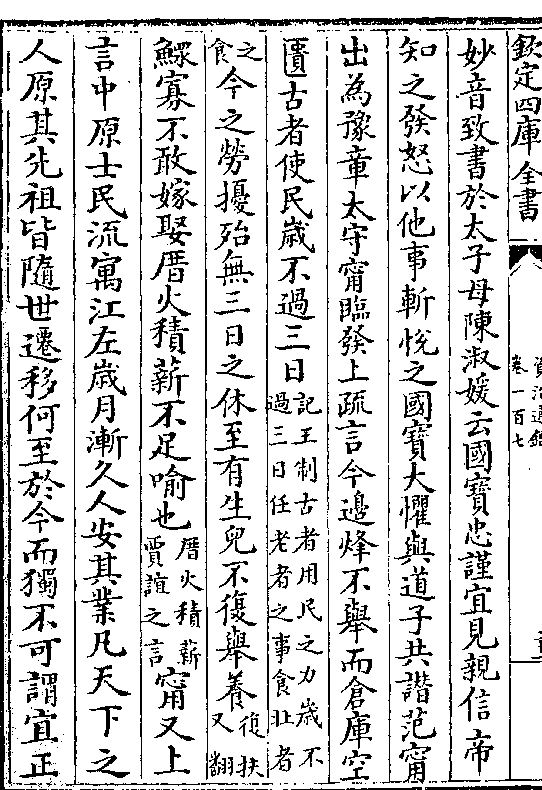 欽定四庫全書
資治通鑑
卷一百七
妙音致書於太子母陳淑媛云國寶忠謹宜見親信帝
知之發怒以他事斬悅之國寶大懼與道子共譖范甯
出為豫章太守甯臨發上疏言今邊烽不舉而倉庫空
匱古者使民歲不過三日記王制古者用民之力歲不過三日任老者之事食壯者
之食今之勞擾殆無三日之休至有生兒不復舉養復扶又翻
鰥寡不敢嫁娶厝火積薪不足喻也厝火積薪賈誼之言甯又上
言中原士民流寓江左歲月漸久人安其業凡天下之
人原其先祖皆隨世遷移何至於今而獨不可謂宜正